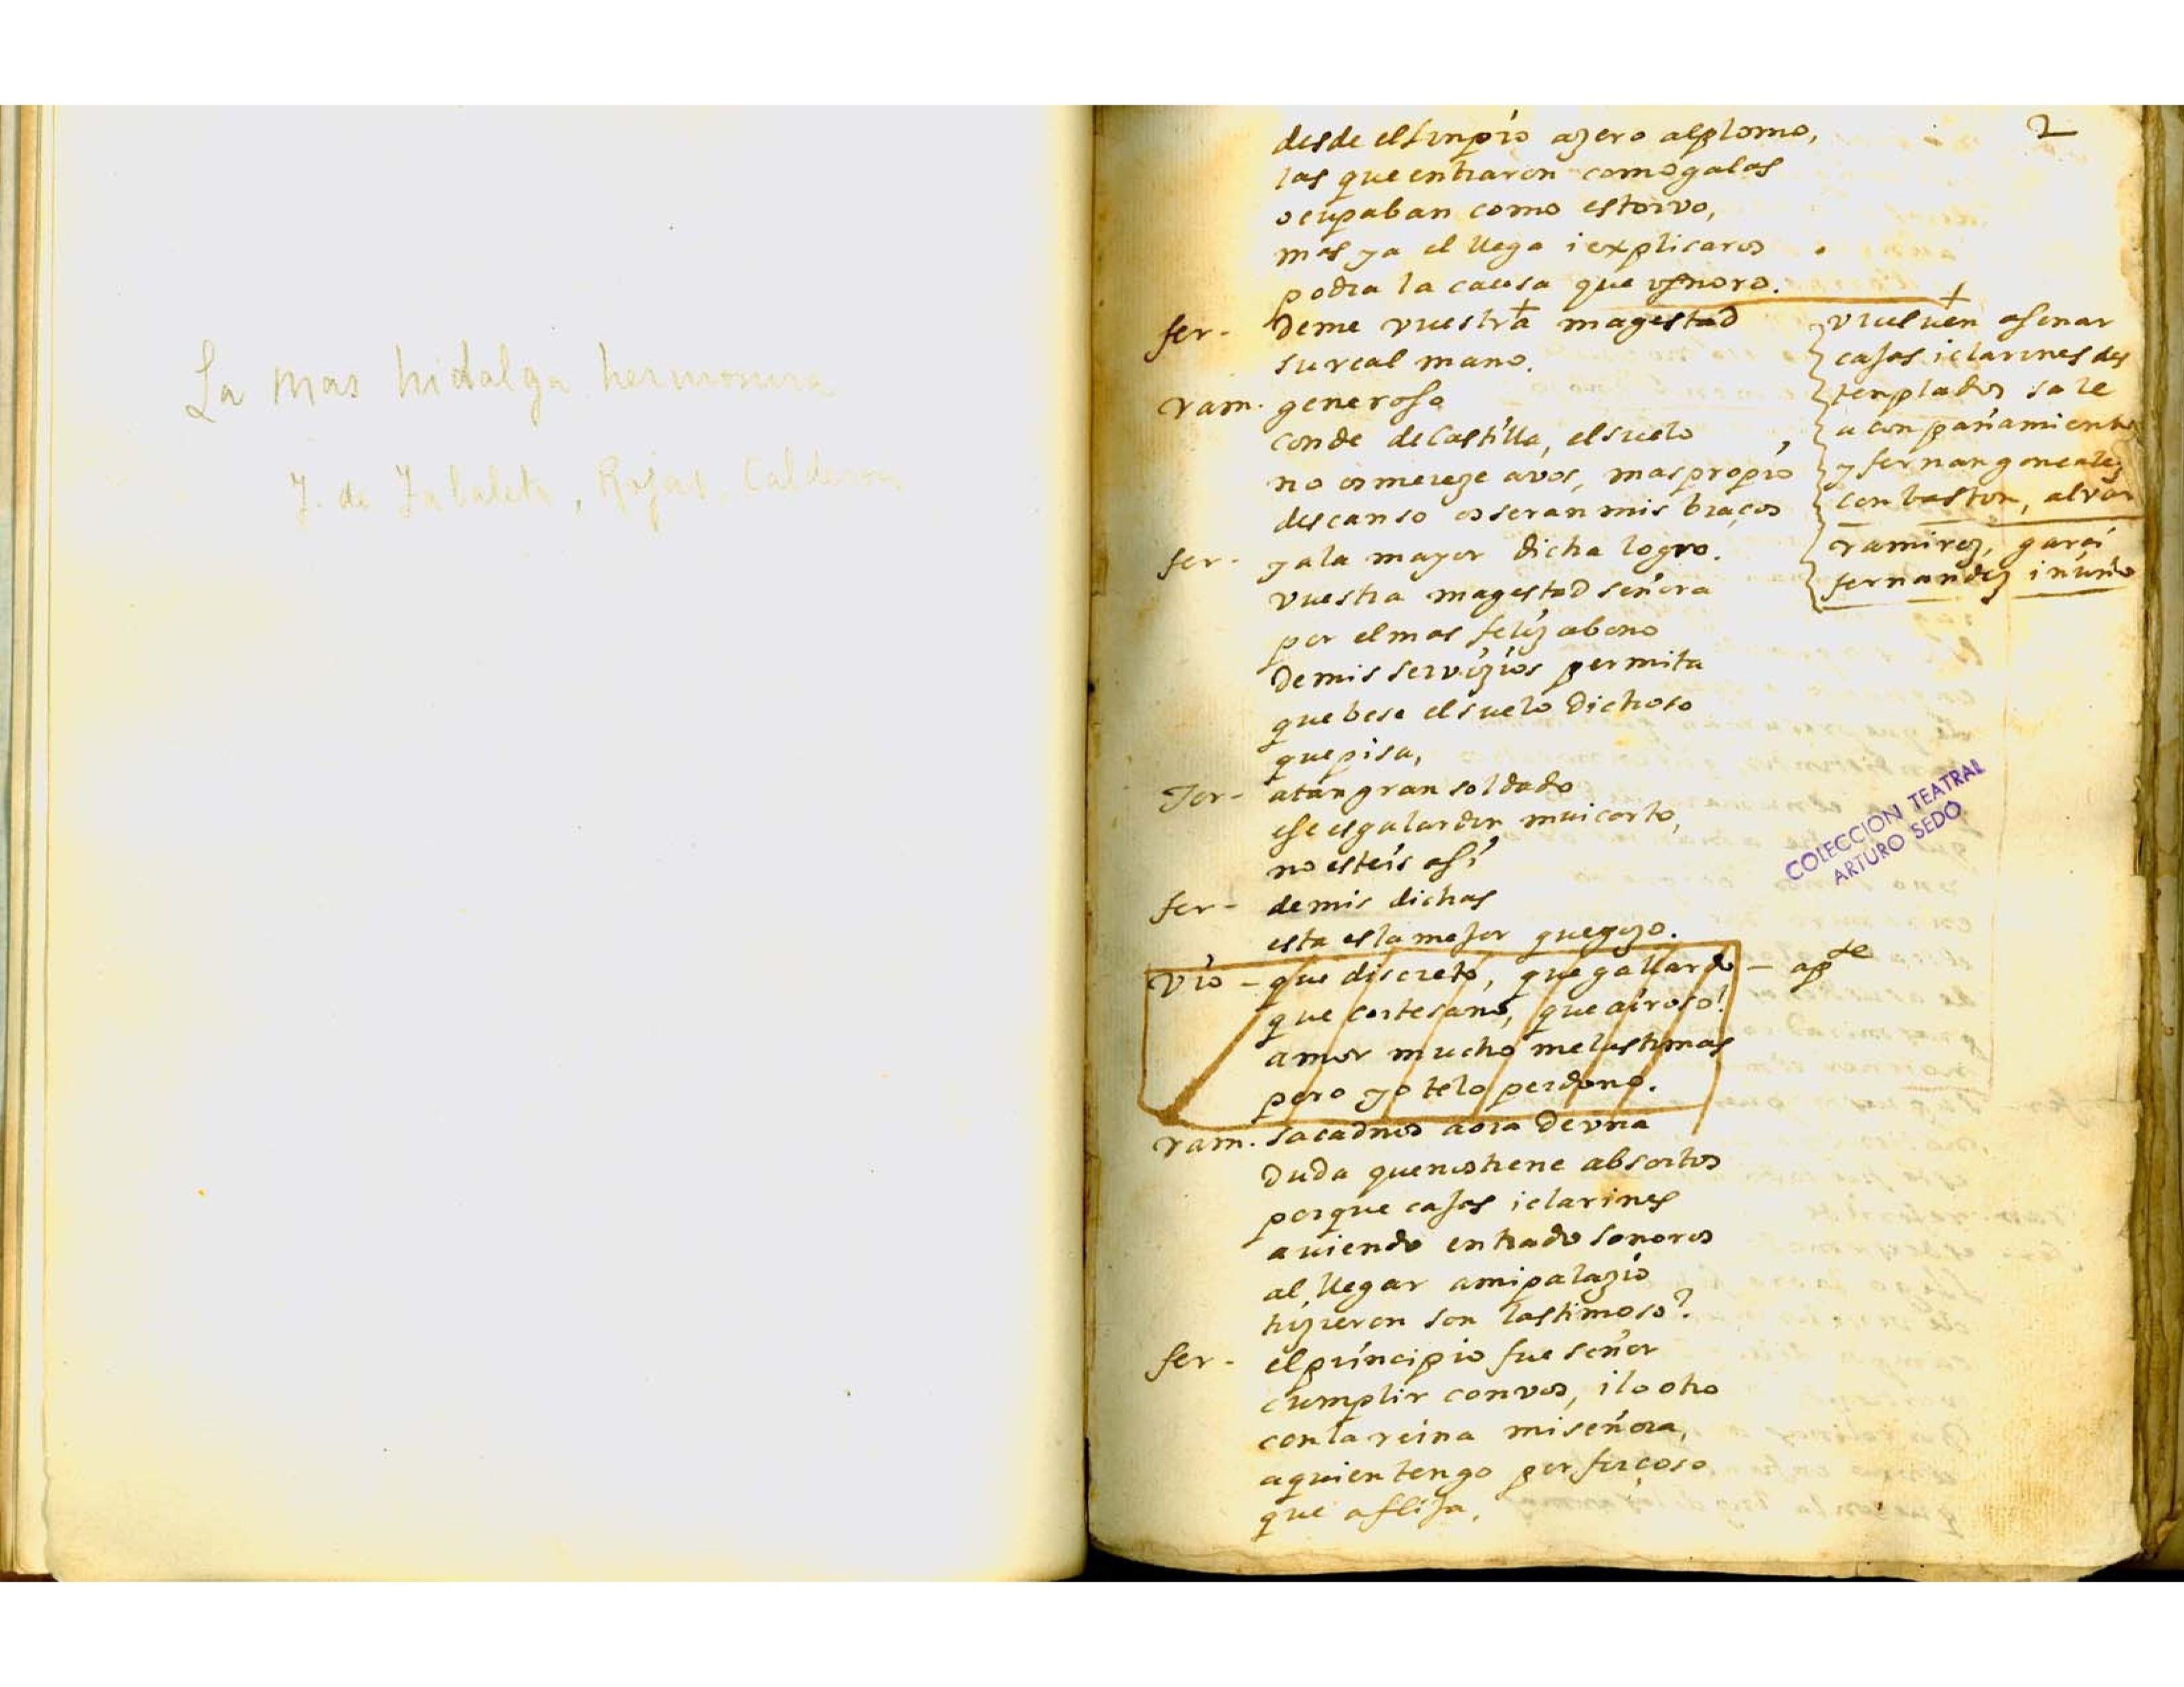 La mas hidalga hermosura
J. de Zabaleta, Rojas, Calderon
2
desde el linpio azero al plomo,
las que entraron como galas
ocupaban como estorvo,
mas ya el llega i explicaros
podra la causa que ygnoro.
fer - Deme vuestra magestad
su real mano.
ram. generoso
conde de Castilla, el suelo
no os mereze a vos, mas propio
descanso os seran mis braços
fer - ya la mayor dicha logro.
vuestra magestad señora
por el mas feliz abono
De mis servizios permita
que bese el suelo Dichoso
que pisa,
vuelven a sonar
cajas i clarines des
templados sale
acompañamiento
y fernan gonzalez
con baston, alvar
ramirez, garci
fernandez i nuño
Ter - a tan gran soldado
ese es galardon mui corto,
no esteis asi
fer - de mis dichas
esta es la mejor que gozo.
vio - que discreto, que gallardo - apte
que cortesano, que airoso!
amor mucho me lastimas
pero yo te lo perdono.
ram. sacadnos aora De vna
Duda que nos tiene absortos
porque cajas i clarines
aviendo entrado sonoros
al llegar a mi palazio
hizieron son lastimoso?
fer - el principio fue señor
cumplir con vos, i lo otro
con la reina mi señora,
a quien tengo por forçoso
que aflija,
COLECCION TEATRAL
ARTURO SEDO